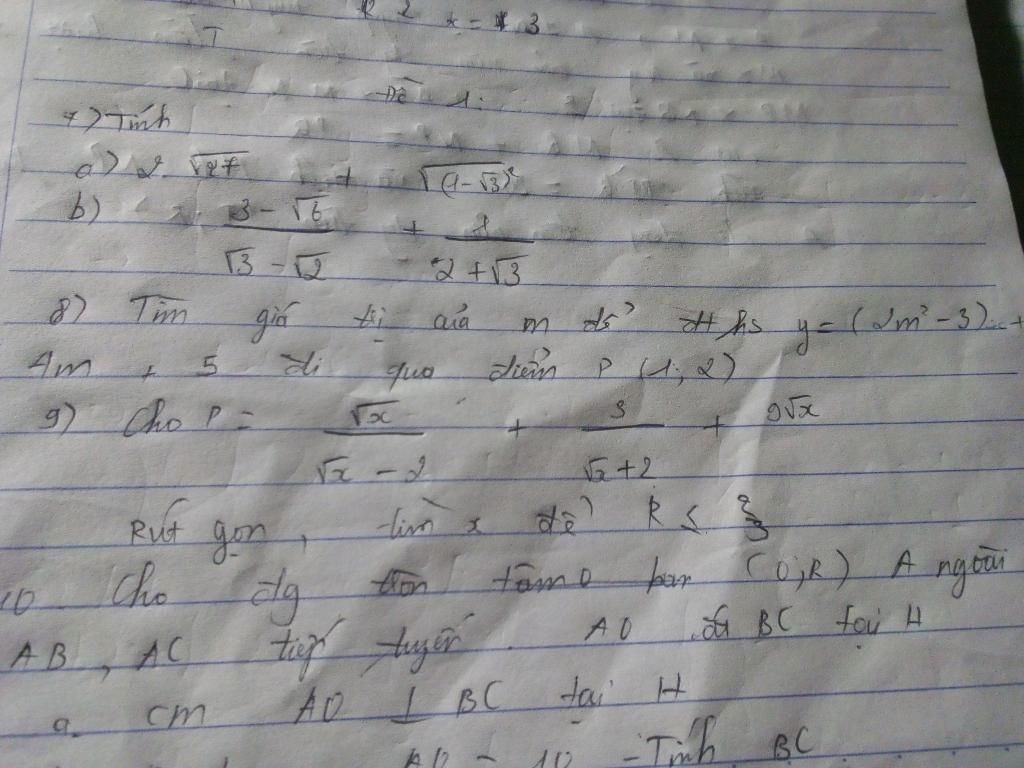 x = 3
Đề 1:
7) Tính
a) 2. √27 + √(1-√3)²
b) 3 - √6 / √3 - √2 + 1 / 2 + √3
8) Tìm giá trị của m để đths y = (2m² - 3)x +
4m + 5 đi qua điểm P (1; 2)
9) Cho P = √x / √x - 2 + 3 / √x + 2 + 9√x
Rút gọn, tìm x để R ≤
10 Cho đg tròn tâm O bán (O; R) A ngoài
AB, AC tiếp tuyến. AO BC tại H
a. cm AO ⊥ BC tại H
AO = 10 - Tính BC